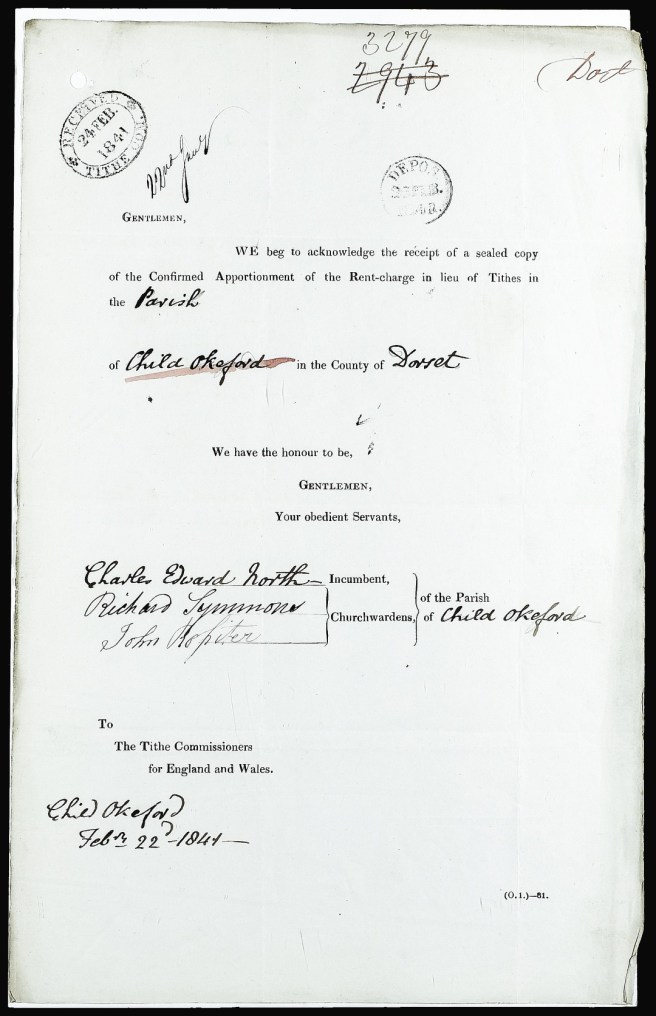 3279
2943
Dort
RECEIVED
24 FEB.
1841
TITHE COM
22nd Jany
DEPOT
23 FEB.
GENTLEMEN,
WE beg to acknowledge the receipt of a sealed copy
of the Confirmed Apportionment of the Rent-charge in lieu of Tithes in
the Parish
of Child Okeford in the County of Dorset
We have the honour to be,
GENTLEMEN,
Your obedient Servants,
Charles Edward North Incumbent,
Richard Symmons
John
Churchwardens,
of the Parish
of Child Okeford
To
The Tithe Commissioners
for England and Wales.
Child Okeford
Febry 22d 1841
(O.1.)—81.